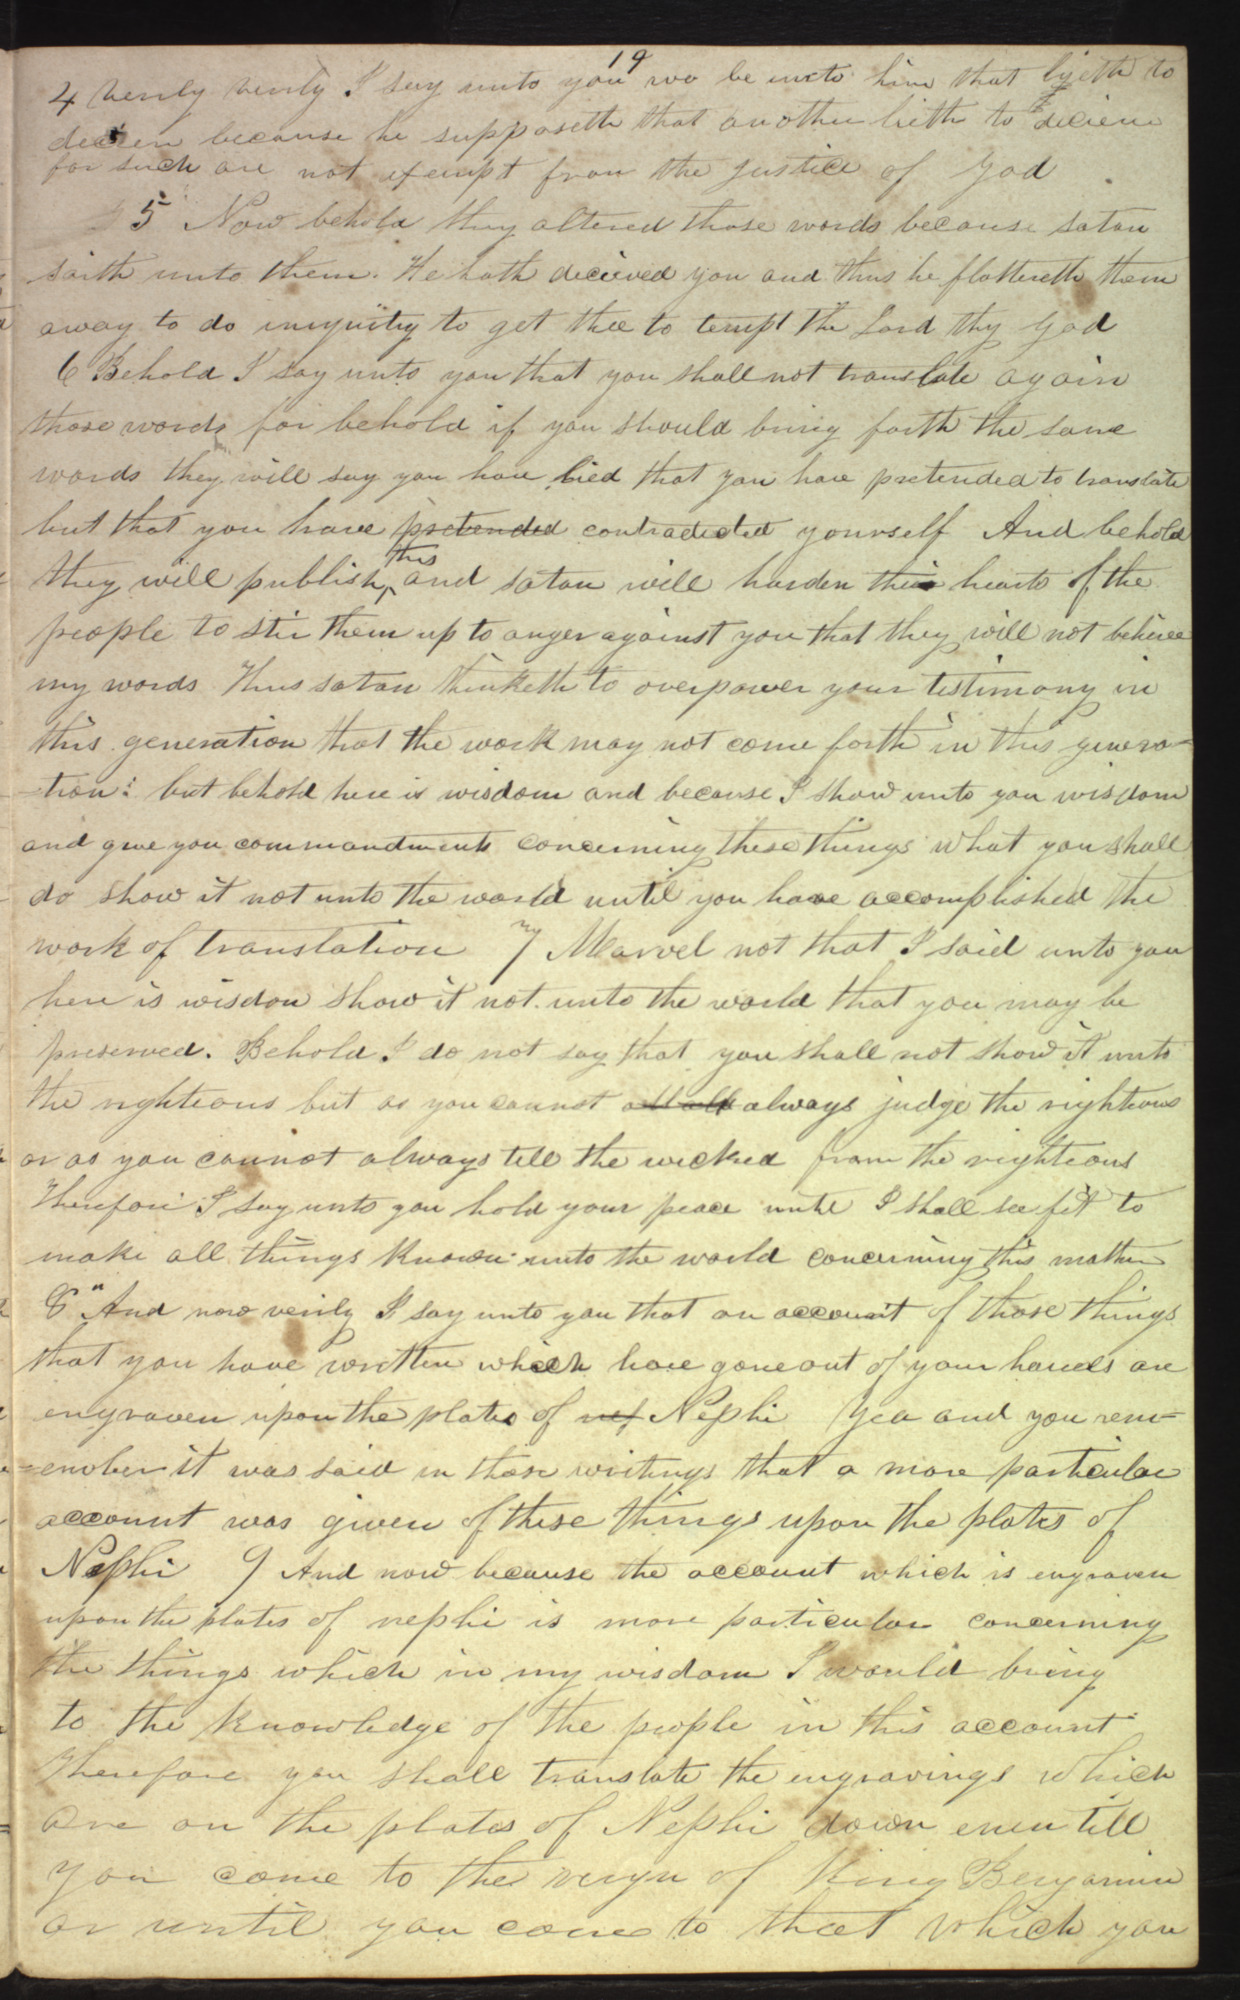 19
4 Verily verily I say unto you wo be unto him that lyeth to
decien because he supposeth that another lieth to decieve
for such are not exempt from the justice of God
5 Now behold they altered those words because satan
saith unto them. He hath decieved you and thus he flattereth them
away to do iniquitiy to get thee to tempt the Lord thy God
6 Behold I say unto you that you shall not translate again
those words for behold if you should bring forth the same
words they will say you have lied that you have pretended to translate
but that you have pretended contradicted yourself And behold
they will publish, this and satan will harden the hearts of the
people to stir them up to anger against you that they will not believe
my words Thus satan thinketh to overpower your testimony in
this generation that the work may not come forth in this genera-
-tion: but behold here is wisdom and because I show unto you wisdom
and give you commandments concerning these things what you shall
do show it not unto the world until you have accomplished the
work of translation 7 Marvel not that I said unto you
here is wisdom show it not unto the world that you may be
preserved. Behold I do not say that you shall not show it unto
the righteous but as you cannot always judge the righteous
or as you cannot always tell the wicked from the righteous
Therefore I say unto you hold your peace until I shall see fit to
make all things known unto the world concerning this matter
8" And now verily I say unto you that an account of those things
that you have written which have gone out of your hands are
engraven upon the plates of nef Nephi Yea and you rem=
=ember it was said in those writings that a more particular
account was given of these things upon the plates of
Nephi 9 And now because the account which is engraven
upon the plates of nephi is more particular concerning
the things which in my wisdom I would bring
to the knowledge of the people in this account
Therefore you shall translate the engravings which
are on the plates of Nephi down even till
you come to the reign of King Benjamin
or until you come to that which you